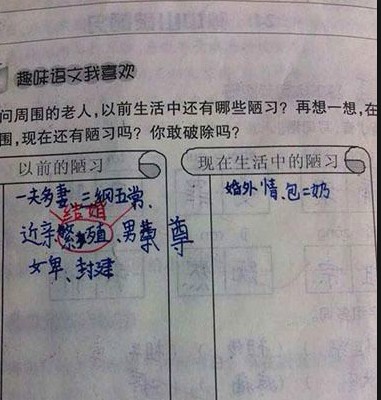 趣味语文我喜欢
问周围的老人,以前生活中还有哪些陋习?再想一想,在
围,现在还有陋习吗?你敢破除吗?
以前的陋习
现在生活中的陋习
一夫多妻、三纲五常、
结婚
近亲繁殖、男尊
女卑、封建
婚外情、包二奶